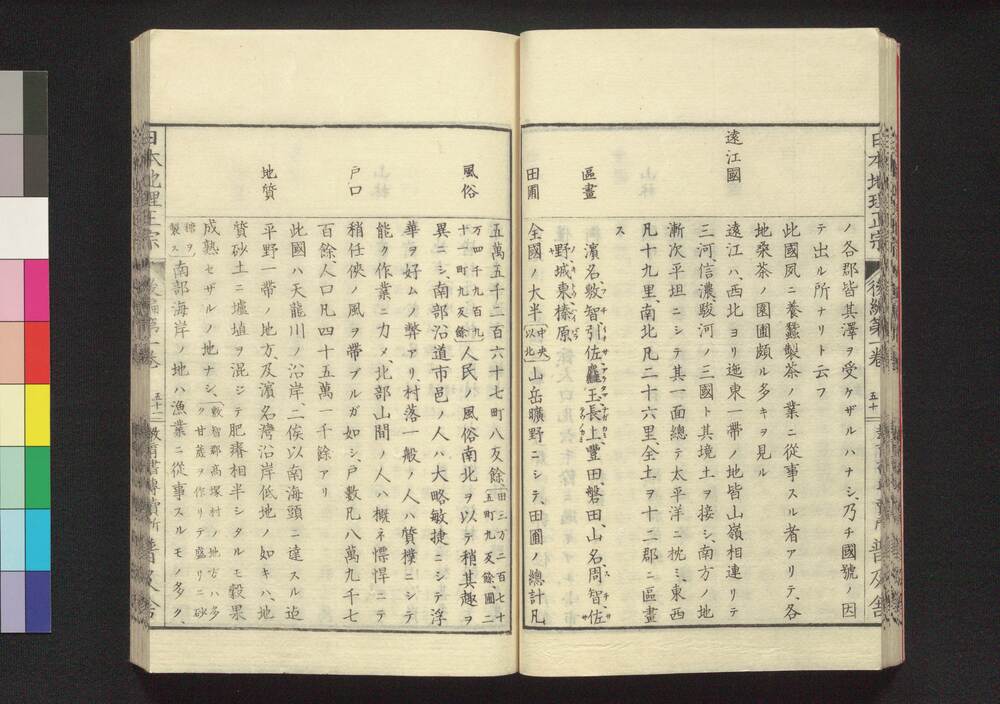 日本地理正宗
後編第一巻
五十一
ノ各郡皆其澤ヲ受ケザルハナシ、乃チ國號ノ因
テ出ル所ナリト云フ
此國夙ニ養蠶製茶ノ業ニ從事スル者アリテ、各
地桑茶ノ園圃頗ル多キヲ見ル
遠江國
遠江ハ、西北ヨリ迤東一帶ノ地皆山嶺相連リテ
三河、信濃、駿河ノ三國ト其境土ヲ接シ、南方ノ地
漸次平坦ニシテ其一面總テ太平洋ニ枕ミ、東西
凡十九里、南北凡二十六里全土ヲ十二郡ニ區畫
ス
區畫
濱名、敷智、引佐、麁玉、長上、豐田、磐田、山名、周智、佐
野、城東、榛原、
田圃
全國ノ大半(中央以北)山岳曠野ニシテ、田圃ノ總計凡
五萬五千二百六十七町八反餘(田三万二百七十五町九反餘、圃二万四千九百九十一町九反餘)
風俗
人民ノ風俗南北ヲ以テ稍其趣ヲ
異ニシ、南部沿道市邑ノ人ハ大略敏捷ニシテ浮
華ヲ好ムノ弊アリ、村落一般ノ人ハ質樸ニシテ
能ク作業ニ力メ、北部山間ノ人ハ概ネ慓悍ニテ
戸口
稍任俠ノ風ヲ帶ブルガ如シ、戸數凡八萬九千七
百餘、人口凡四十五萬一千餘アリ
地質
此國ハ天龍川ノ沿岸、二俣以南海頭ニ達スル迄
平野一帶ノ地方、及濱名灣沿岸低地ノ如キハ、地
質砂土ニ墟埴ヲ混ジテ肥瘠相半シタルモ穀果
成熟セザルノ地ナシ、(敷智郡高塚村ノ地方ハ多ク甘蔗ヲ作リテ盛リニ砂糖ヲ製ス)
南部海岸ノ地ハ漁業ニ從事スルモノ多ク、
日本地理正宗
後編第一巻
五十二